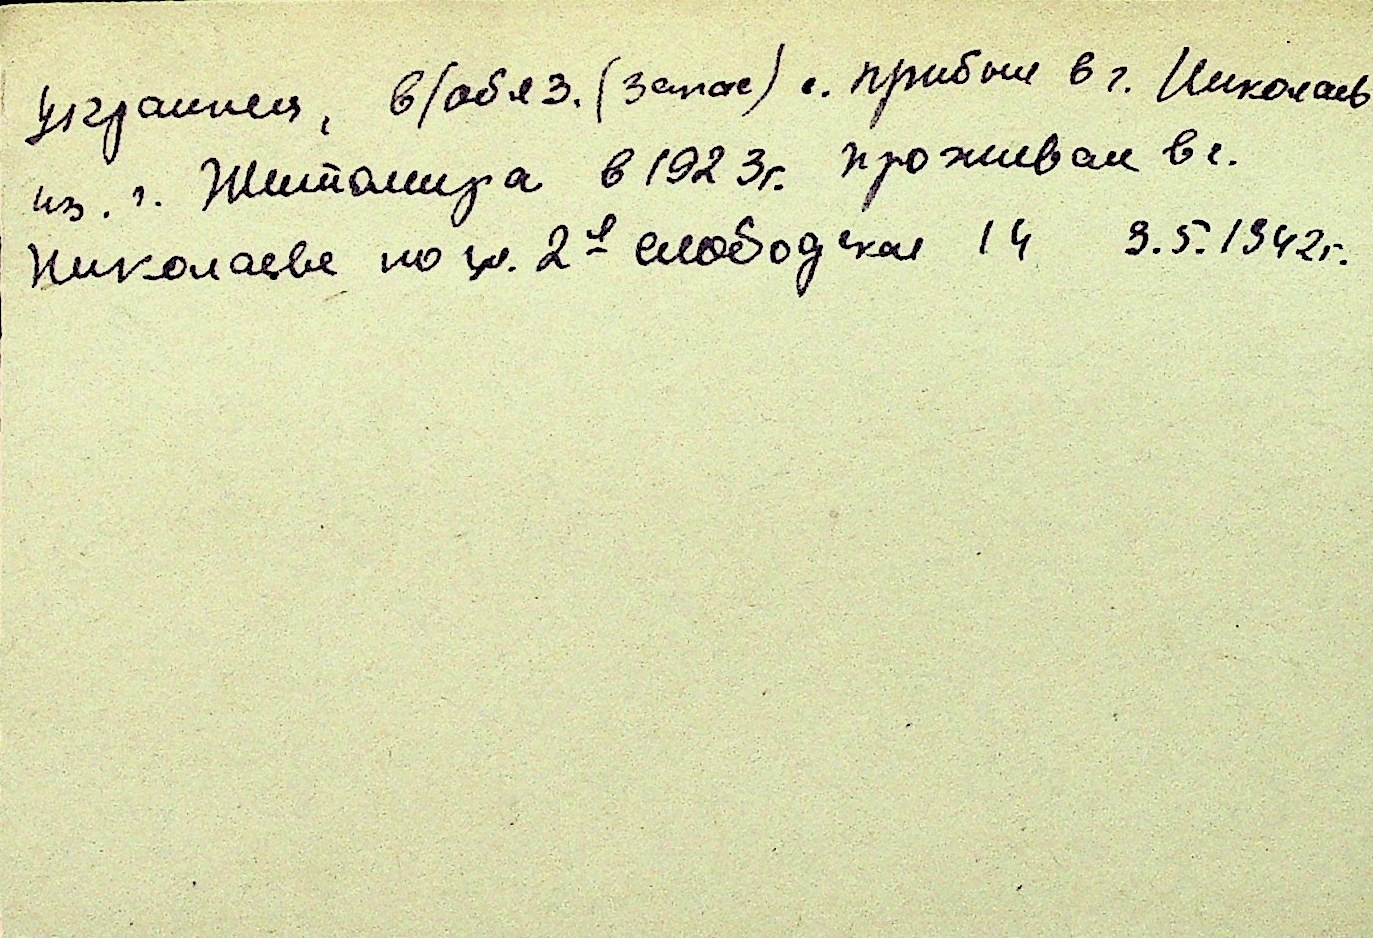 украинец, в/обяз. (запас) г. прибыл в г. Николаев
из. г. Житомира в 1923г. проживал в г.
Николаеве по ул. 2я слободская 14 9.5.1942г.